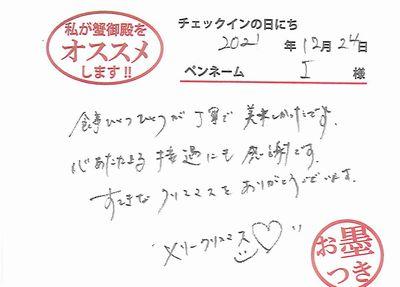 私が蟹御殿を
オススメ
します!!
チェックインの日にち
2021年12月24日
ペンネーム I 様
食事ひとつひとつが丁寧で美味しかったです。
心あたたまる接遇にも感謝です。
すてきなクリスマスをありがとうございます。
"メリークリスマス"
お墨
つき